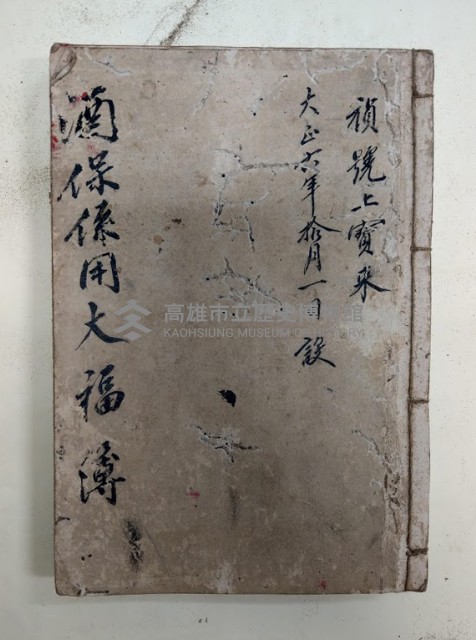 禎號上寶來
大正六年拾月一日設
酒保係用大福簿
高雄市立歷史博物館
KAOHSIUNG MUSEUM OF HISTORY